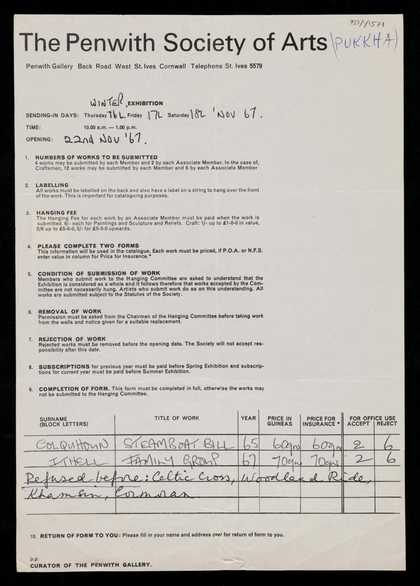 The Penwith Society of Arts (PUKKHA)
Penwith Gallery Back Road West St. Ives Cornwall Telephone St. Ives 5579
WINTER EXHIBITION
SENDING-IN DAYS: Thursday 16th, Friday 17th Saturday 18th 'NOV 67.
TIME: 10.00 a.m. — 1.00 p.m.
OPENING: 22nd NOV '67.
1. NUMBERS OF WORKS TO BE SUBMITTED
4 works may be submitted by each Member and 2 by each Associate Member. In the case of,
Craftsmen, 12 works may be submitted by each Member and 6 by each Associate Member
2. LABELLING
All works must be labelled on the back and also have a label on a string to hang over the front
of the work. This is important for cataloguing purposes.
3. HANGING FEE
The Hanging Fee for each work by an Associate Member must be paid when the work is
submitted. 5/- each for Paintings and Sculpture and Reliefs. Craft: 1/- up to £1-0-0 in value,
2/6 up to £5-0-0, 5/- for £5-0-0 upwards.
4. PLEASE COMPLETE TWO FORMS
This information will be used in the catalogue. Each work must be priced, if P.O.A. or N.F.S.
enter value in column for Price for Insurance.*
5. CONDITION OF SUBMISSION OF WORK
Members who submit work to the Hanging Committee are asked to understand that the
Exhibition is considered as a whole and it follows therefore that works accepted by the Com-
mittee are not necessarily hung. Artists who submit work do so on this understanding. All
works are submitted subject to the Statutes of the Society.
6. REMOVAL OF WORK
Permission must be asked from the Chairman of the Hanging Committee before taking work
from the walls and notice given for a suitable replacement.
7. REJECTION OF WORK
Rejected works must be removed before the opening date. The Society will not accept res-
ponsibility after this date.
8. SUBSCRIPTIONS for previous year must be paid before Spring Exhibition and subscrip-
tions for current year must be paid before Summer Exhibition.
9. COMPLETION OF FORM. This form must be completed in full, otherwise the works may
not be submitted to the Hanging Committee.
SURNAME (BLOCK LETTERS) TITLE OF WORK YEAR PRICE IN GUINEAS PRICE FOR INSURANCE * FOR OFFICE USE ACCEPT REJECT
COLQUHOUN STEAMBOAT BILL 65 60gns 60gns 2 6
ITHELL FAMILY GROUP 67 70gns 70gns 2 6
Refused before: Celtic Cross, Woodland Ride,
Khamsin, Cormoran
10. RETURN OF FORM TO YOU: Please fill in your name and address over for return of form to you.
CURATOR OF THE PENWITH GALLERY.